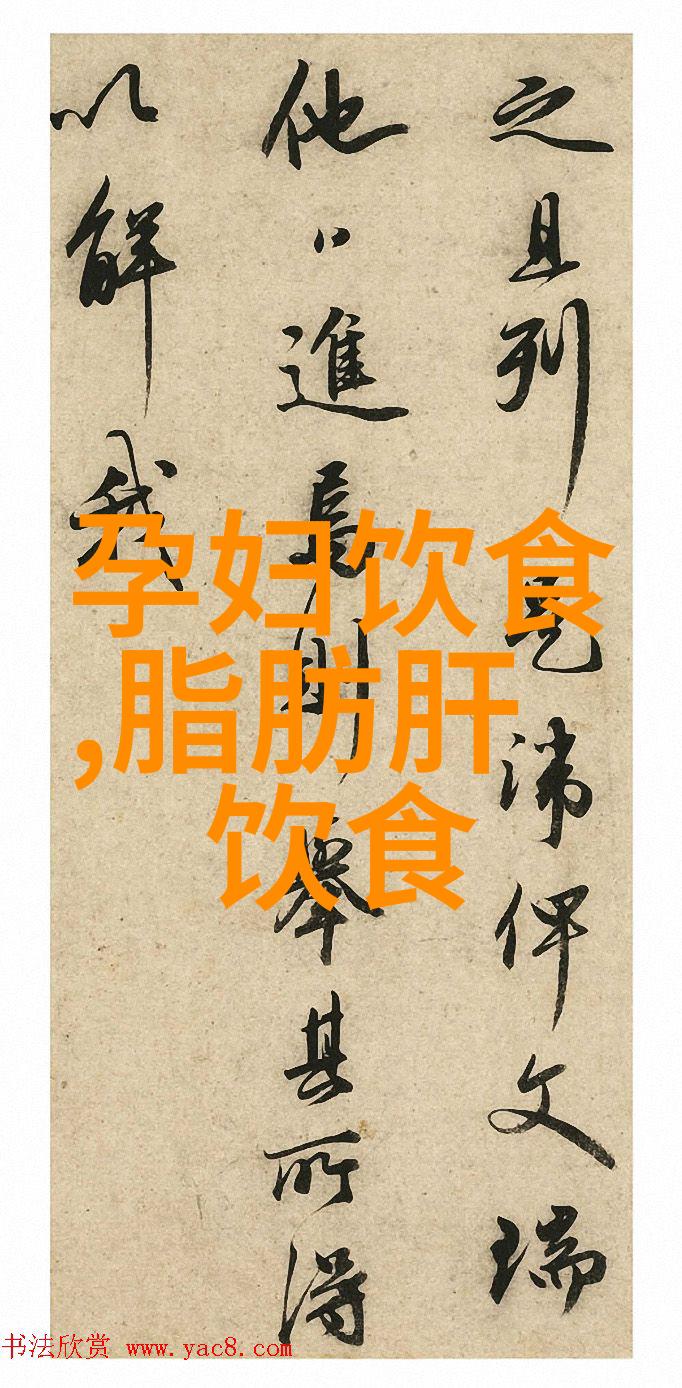 之且列
諱俾文瑞
他日進
舉其所得
以解我
孕妇饮食
,脂肪肝
饮食
书法欣赏 www.yac8.com